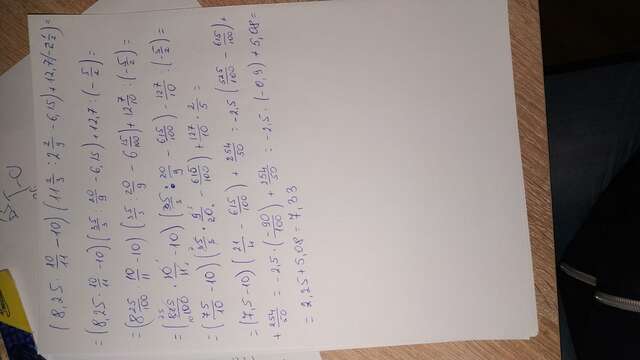 (8,25 · 10/11 − 10) (11 2/3 : 2 2/9 − 6,15) + 12,7 : (−2 1/2) =
= (8,25 · 10/11 − 10) (35/3 : 20/9 − 6,15) + 12,7 : (−5/2) =
= (8 25/100 · 10/11 − 10) (35/3 : 20/9 − 6 15/100) + 12 7/10 : (−5/2) =
= (825/100 · 10/11 − 10) (35/3 : 20/9 − 615/100) − 127/10 : (−5/2) =
= (75/10 − 10) (35/3 · 9/20 − 615/100) + 127/10 · 2/5 =
= (7,5 − 10) (21/4 − 615/100) + 254/50 = −2,5 (525/100 − 615/100) +
+ 254/50 = −2,5 · (−90/100) + 254/50 = −2,5 · (−0,9) + 5,08 =
= 2,25 + 5,08 = 7,33